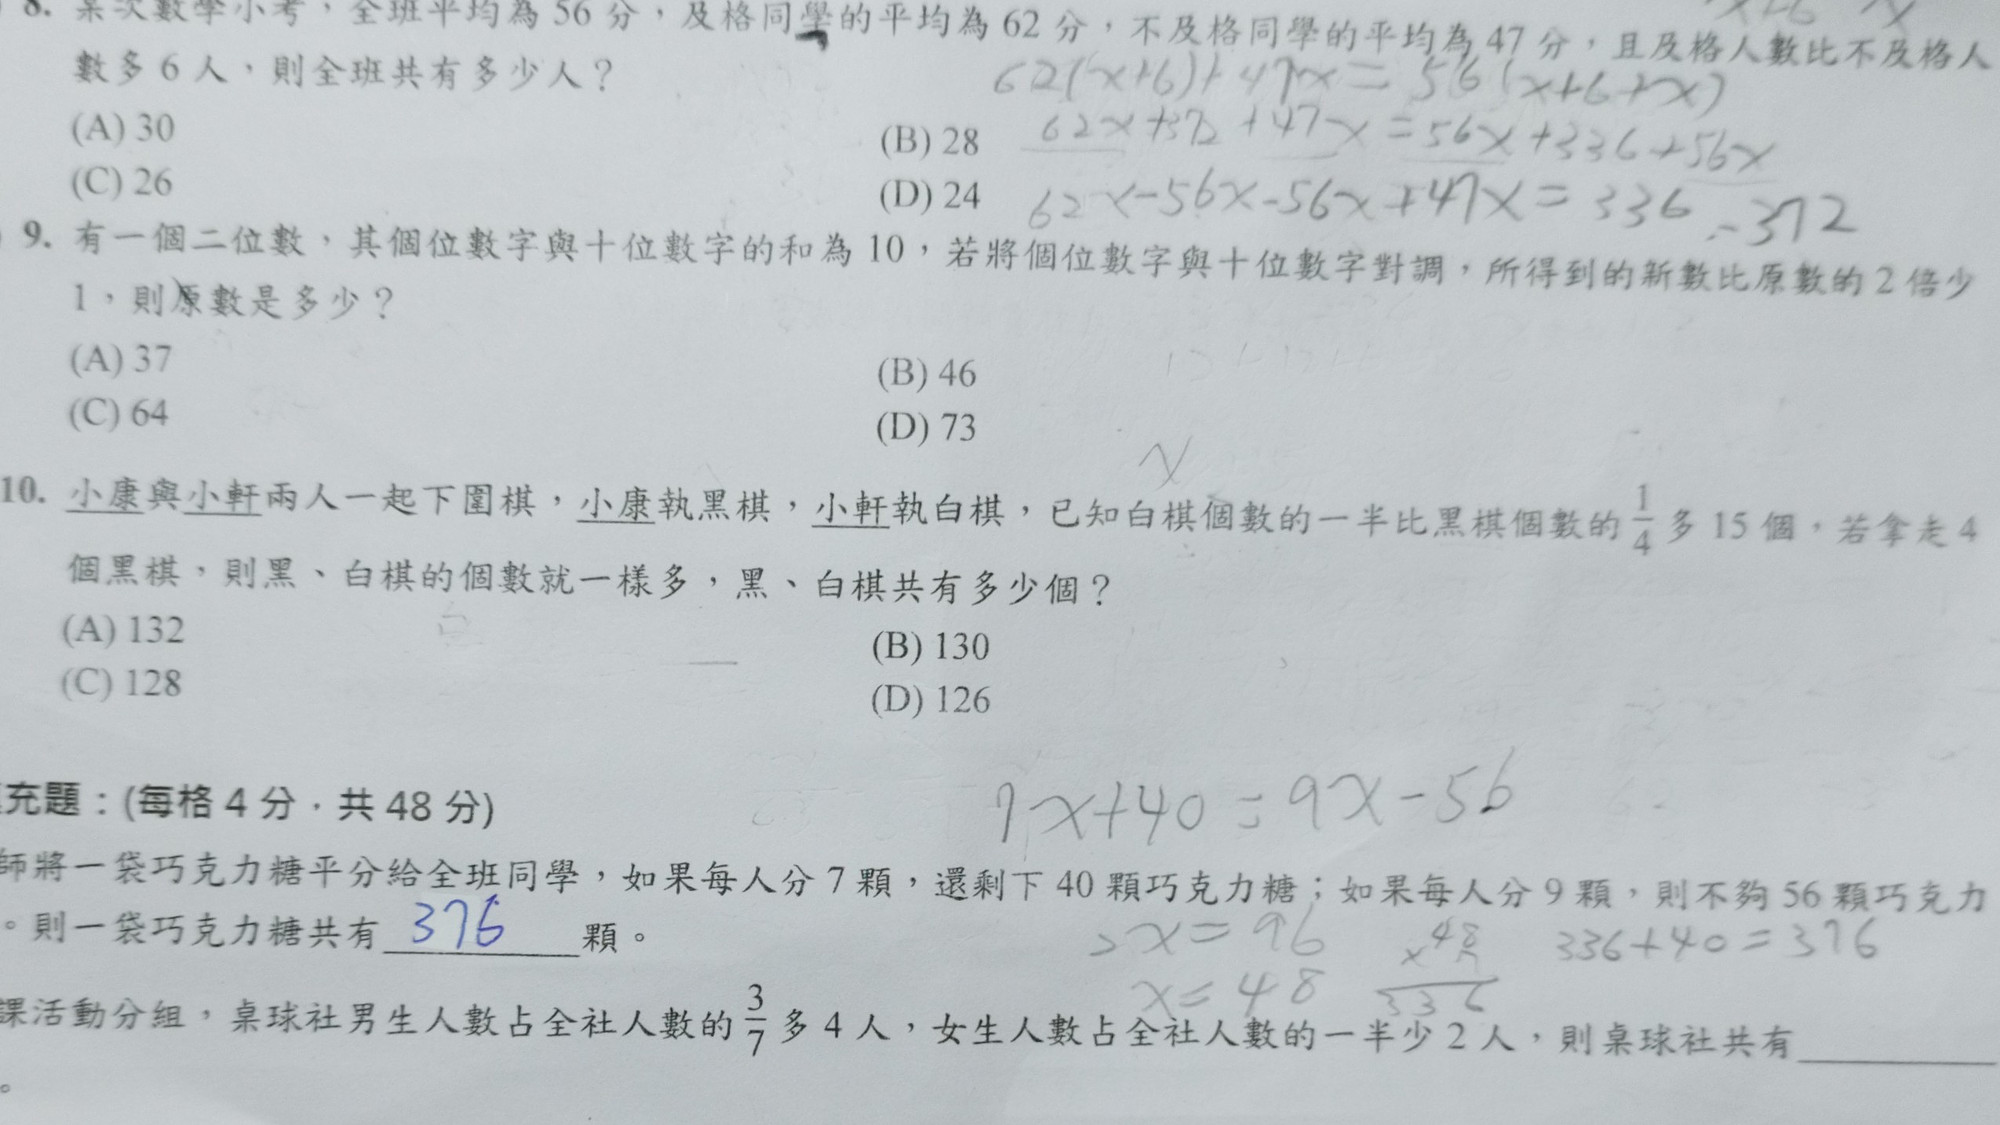 8. 某次數學小考，全班平均為 56 分，及格同學的平均為 62 分，不及格同學的平均為 47 分，且及格人數比不及格人
數多 6 人，則全班共有多少人？
62(x+6)+47x=56(x+6+x)
(A) 30
(B) 28
62x+372+47x=56x+336+56x
(C) 26
(D) 24
62x-56x-56x+47x=336-372
9. 有一個二位數，其個位數字與十位數字的和為 10，若將個位數字與十位數字對調，所得到的新數比原數的 2 倍少
1，則原數是多少？
(A) 37
(B) 46
(C) 64
(D) 73
x
10. 小康與小軒兩人一起下圍棋，小康執黑棋，小軒執白棋，已知白棋個數的一半比黑棋個數的 1/4 多 15 個，若拿走 4
個黑棋，則黑、白棋的個數就一樣多，黑、白棋共有多少個？
(A) 132
(B) 130
(C) 128
(D) 126
7x+40=9x-56
充題：(每格 4 分，共 48 分)
師將一袋巧克力糖平分給全班同學，如果每人分 7 顆，還剩下 40 顆巧克力糖；如果每人分 9 顆，則不夠 56 顆巧克力
。則一袋巧克力糖共有 376 顆。
2x=96
x=48
48
×7
336
336+40=376
課活動分組，桌球社男生人數占全社人數的 3/7 多 4 人，女生人數占全社人數的一半少 2 人，則桌球社共有
。